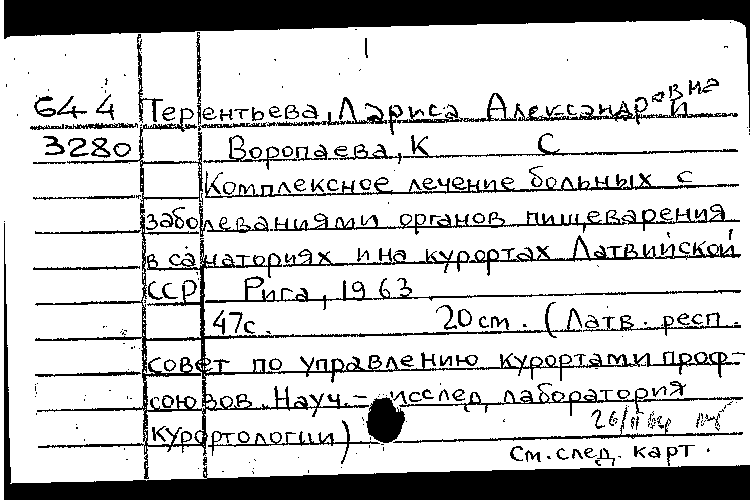 644 Терентьева, Лариса Александровна
3280 Воропаева, К С
Комплексное лечение больных с
заболеваниями органов пищеварения
в санаториях и на курортах Латвийской
ССР Рига, 1963
47с. 20cm. (Латв. респ.
совет по управлению курортами проф-
союзов. Науч.-исслед. лаборатория
курортологии)
См. след. карт.